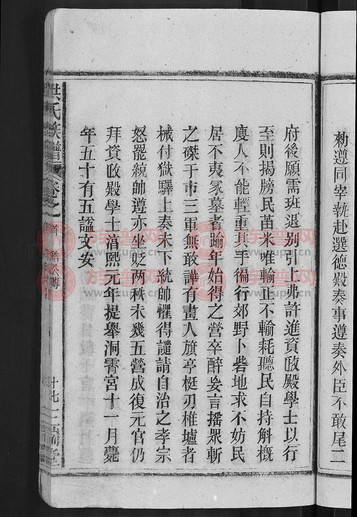 勑遵同宰執赴選德殿奏事遵奏外臣不敢尾二
府後願需班退別引
詔許進資政殿學士以行
至則揭牓民苗米唯輸正不輸耗聽民自持斛概
庾人不能輕重其手循行郊野卜砦地求不妨民
居不夷冢墓者踰年始得之營卒醉妄言播眾斬
之磔于市三軍無敢譁有盡人旗亭梃刃椎壚者
械付獄驛上奏未下統帥懼得譴請自治之孝宗
怒罷統帥遵亦坐貶兩秩未幾五營成復元官仍
拜資政殿學士淳熙元年提舉洞霄宮十一月薨
年五十有五諡文安
洪氏族譜
卷之